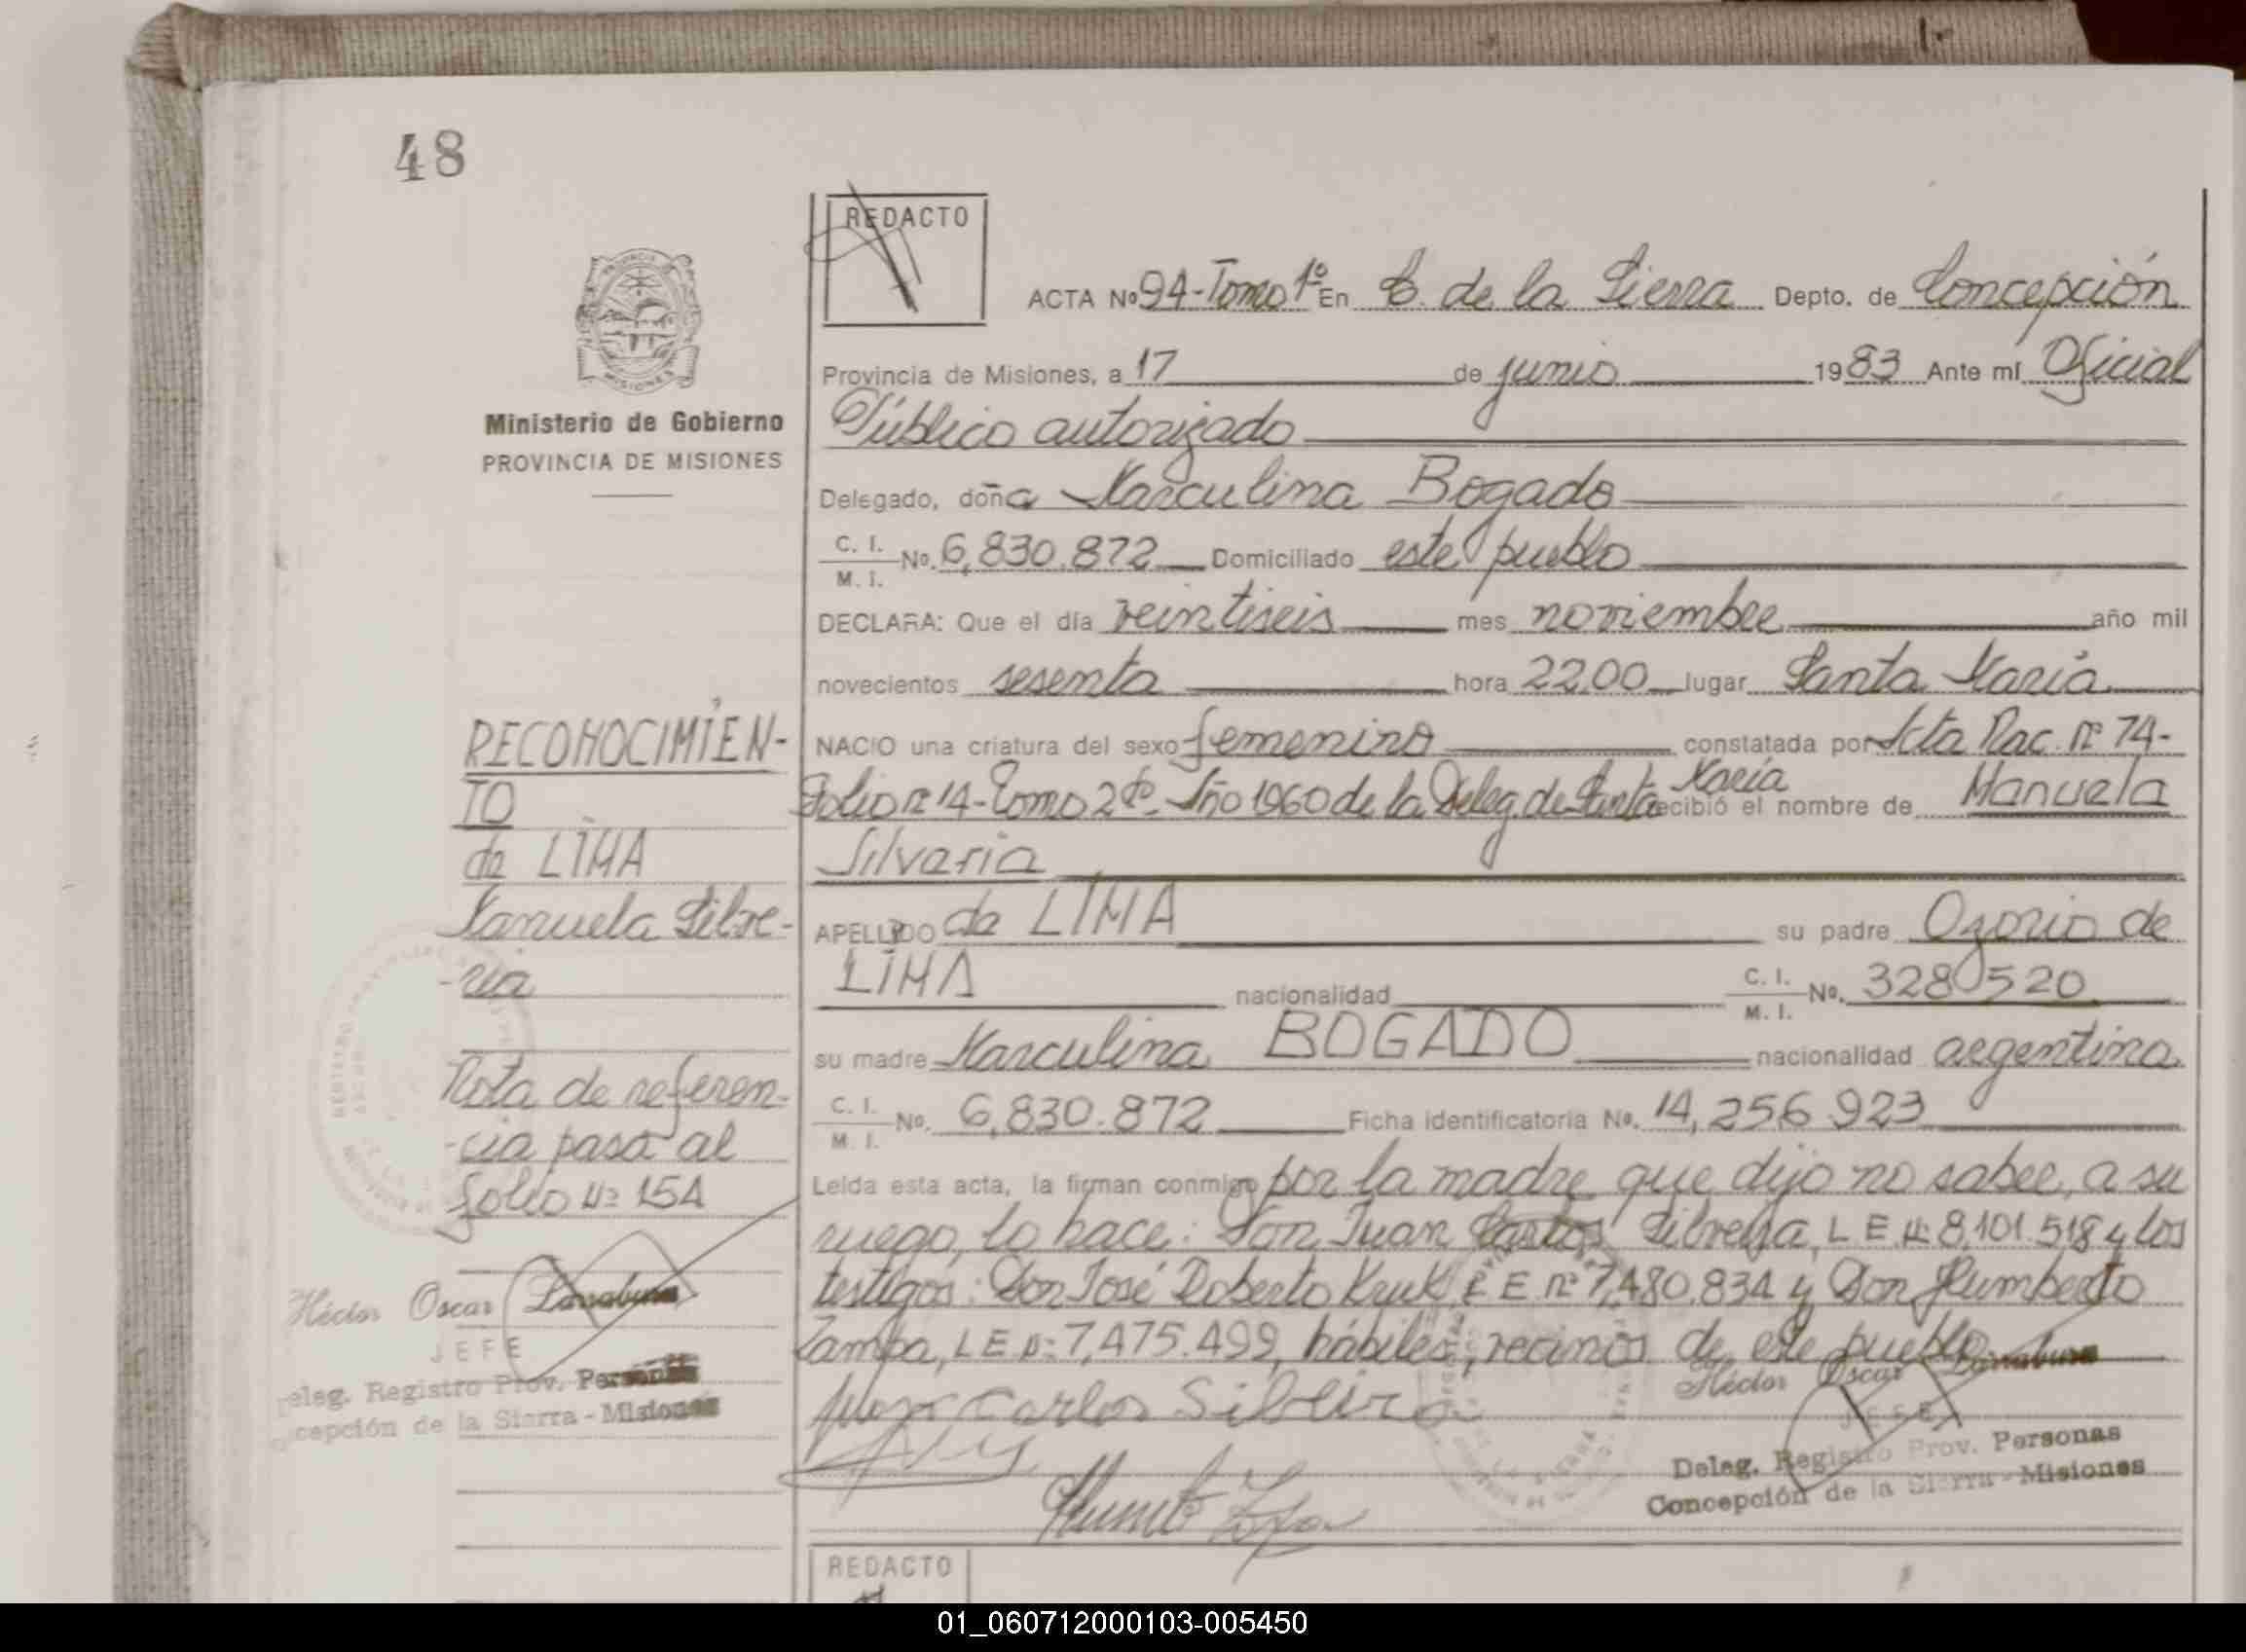 48
REDACTO
ACTA Nº 94-Tomo 1º En C. de la Sierra Depto. de Concepción
Provincia de Misiones, a 17 de junio 1983 Ante mí Oficial
Público autorizado
Delegado, doña Marculina Bogado
C. I. M. I. No. 6,830.872 Domiciliado este pueblo
DECLARA: Que el día veintiseis mes noviembre año mil
novecientos sesenta hora 22,00 lugar Santa María
NACIO una criatura del sexo femenino constatada por Acta Nac. nº 74-
Folio nº 14-Tomo 2do- Año 1960 de la Deleg. de Santa María recibió el nombre de Manuela
Silvaria
APELLIDO de LIMA su padre Ozorio de
LIMA nacionalidad C. I. M. I. No. 3280520
su madre Marculina BOGADO nacionalidad argentina
C. I. M. I. No. 6,830.872 Ficha identificatoria No. 14,256.923
Leída esta acta, la firman conmigo por la madre que dijo no saber, a su
ruego, lo hace: Don Juan Carlos Silveira, L E Nº 8,101.518 y los
testigos: Don José Roberto Kruk, L E nº 7,480.834 y Don Humberto
Zampa, L E nº 7,475.499, hábiles, vecinos de este pueblo
Juan Carlos Silveira
Héctor Oscar Larraburu
JEFE
Deleg. Registro Prov. Personas
Concepción de la Sierra - Misiones
Ministerio de Gobierno
PROVINCIA DE MISIONES
RECONOCIMIEN-
TO
de LIMA
Manuela Silve-
-ria
Nota de referen-
-cia pasa al
folio Nº 154
Héctor Oscar Larraburu
JEFE
eleg. Registro Prov. Personas
cepción de la Sierra - Misiones
REDACTO
01_060712000103-005450